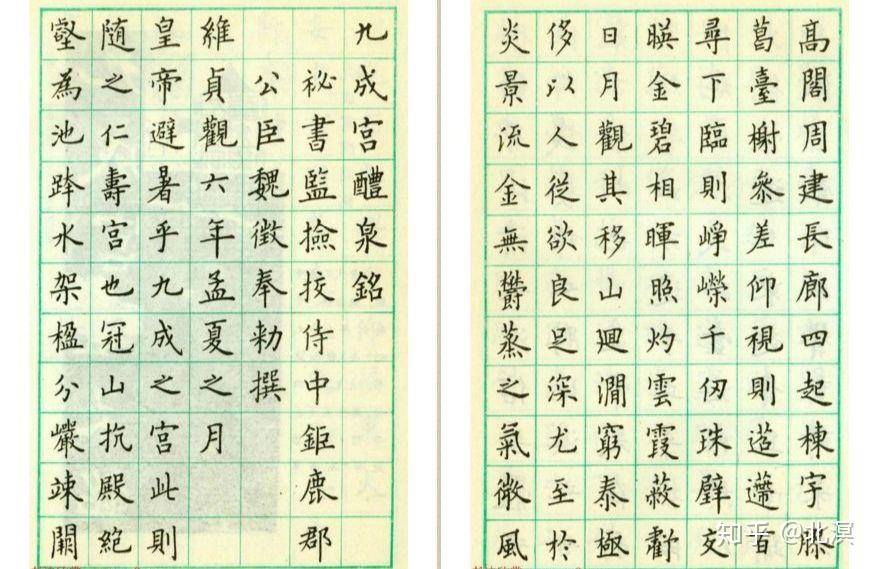 九成宮醴泉銘
祕書監撿挍侍中鉅鹿郡
公臣魏徵奉勑撰
維貞觀六年孟夏之月
皇帝避暑乎九成之宮此則
随之仁壽宮也冠山抗殿絕
壑為池跨水架楹分巖竦闕
髙閣周建長廊四起棟宇膠
葛臺榭叅差仰視則迢遰百
尋下臨則崢嶸千仞珠璧交
暎金碧相暉照灼雲霞蔽虧
日月觀其移山廻澗窮泰極
侈以人從欲良足深尤至於
炎景流金無欝蒸之氣微風
知乎 @北溟